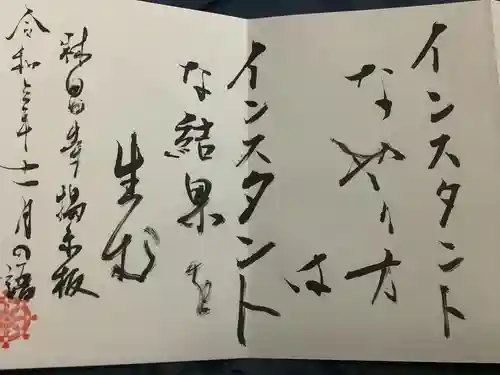 インスタント
なやり方
は
インスタント
な結果を
生む
掲示板
令和三年十一月の語